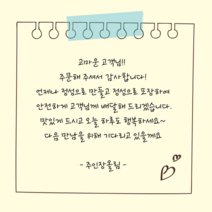 고마운 고객님!!
주문해 주셔서 감사합니다!
언제나 정성으로 만들고 정성으로 포장하여
안전하게 고객님께 배달해 드리겠습니다.
맛있게 드시고 오늘 하루도 행복하세요~
다음 만남을 위해 기다리고 있을께요
- 주인장올림 -